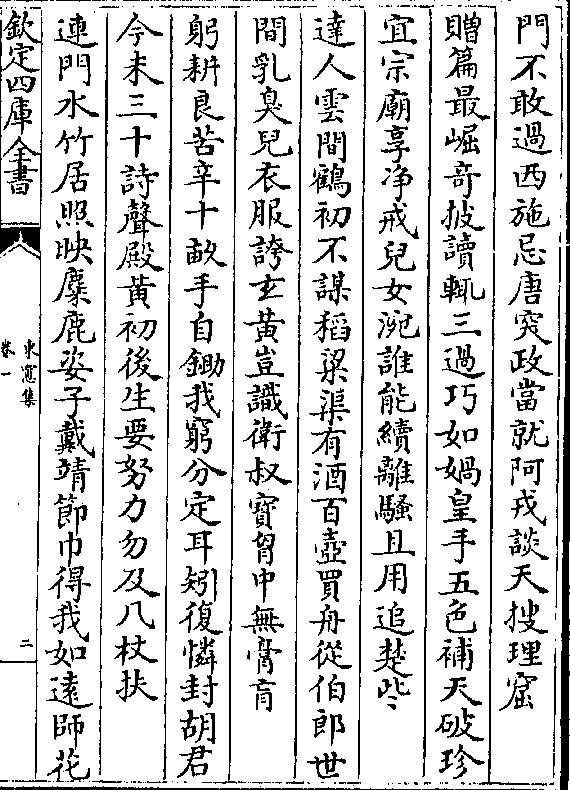 門不敢過西施忌唐突政當就阿戎談天搜理窟
贈篇最崛奇披讀輒三過巧如媧皇手五色補天破珍
宜宗廟享净戒兒女涴誰能續離騷且用追楚些
達人雲間鶴初不謀稻粱渠有酒百壺買舟從伯郎世
間乳臭兒衣服誇玄黄豈識衛叔寳胷中無膏肓
躬耕良苦辛十畝手自鋤我窮分定耳矧復憐封胡君
今未三十詩聲殿黄初後生要努力勿及几杖扶
連門水竹居照映麋鹿姿子戴靖節巾得我如遠師花
欽定四庫全書
東窻集
卷一
二